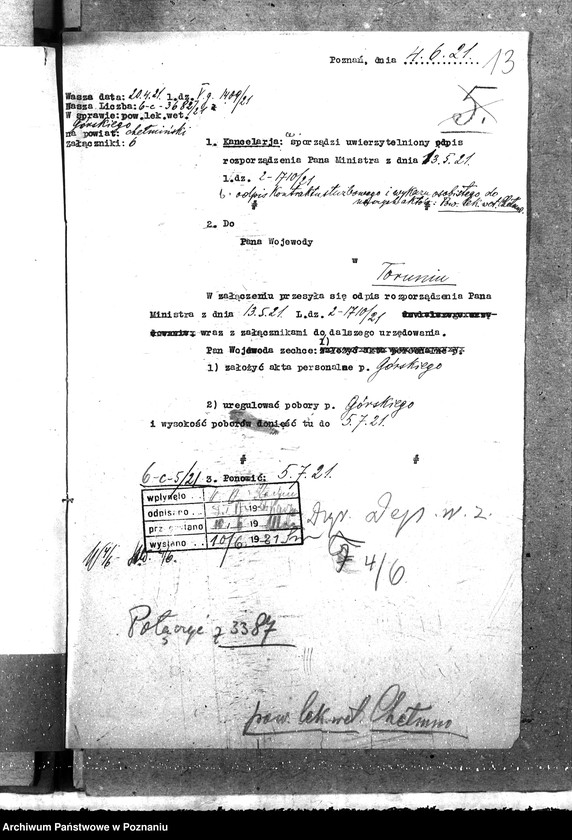 Poznań, dnia 4.6.21.
13
5.
Wasza data: 20.4.21 l.dz. V g. 1409/21
Nasza Liczba: 6-c-3682/21
W sprawie: pow.lek.wet.
Górskiego
na powiat: chełmiński
załączniki: 6
1. Kancelarja: sporządzi uwierzytelniony odpis
rozporządzenia Pana Ministra z dnia 13.5.21.
l.dz. 2-1710/21
i odpis kontraktu służbowego i wykazu osobistego do
aktów: Pow. lek. wet. Chełmno.
2. Do
Pana Wojewody
w
Toruniu
W załączeniu przesyła się odpis rozporządzenia Pana
Ministra z dnia 13.5.21. L.dz. 2-1710/21
wraz z załącznikami do dalszego urzędowania.
Pan Wojewoda zechce: założyć akta personalne p.
1) założyć akta personalne p. Górskiego
2) uregulować pobory p. Górskiego
i wysokość poborów donieść tu do 5.7.21.
6-c-5/21 3. Ponowić: 5.7.21.
wpłynęło
odpisano 19
przepisano 19
wysłano 10/6 1921
Dyr. Dep. w. z.
4/6
Połączyć z 3387
pow. lek. wet. Chełmno
Archiwum Państwowe w Poznaniu